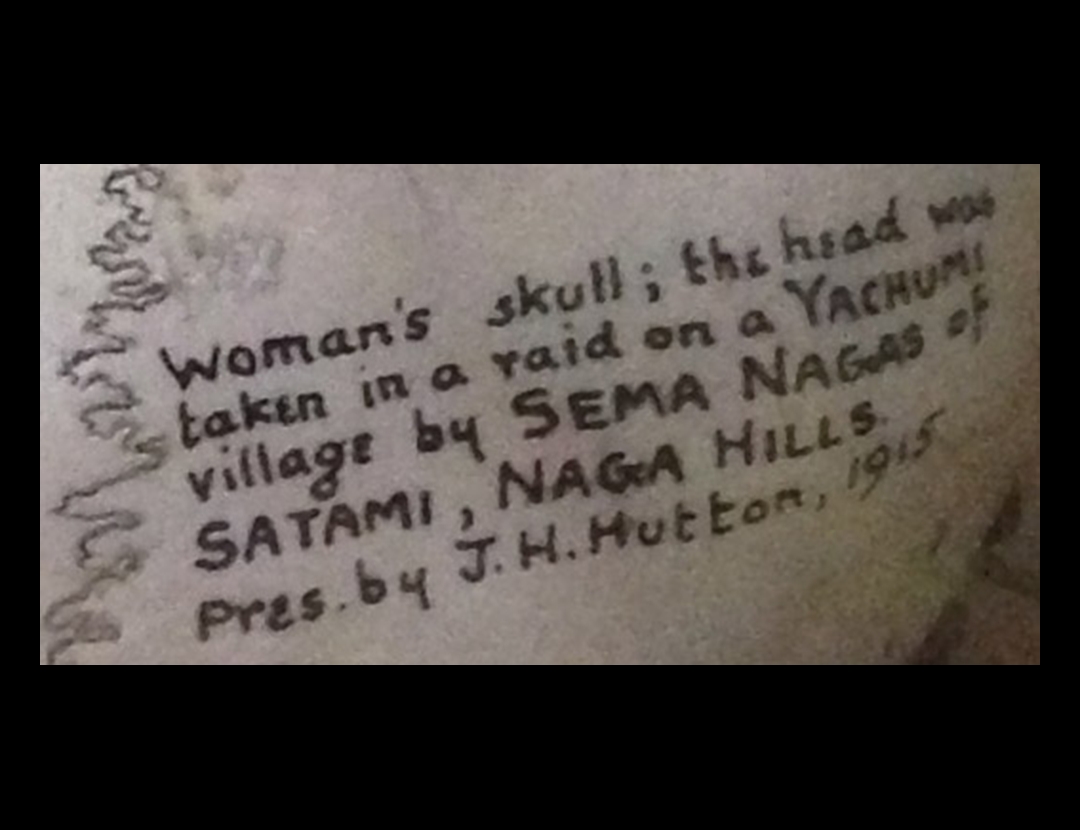 Woman's skull; the head was
taken in a raid on a YACHUMI
village by SEMA NAGAS of
SATAMI, NAGA HILLS.
pres. by J.H. Hutton, 1915